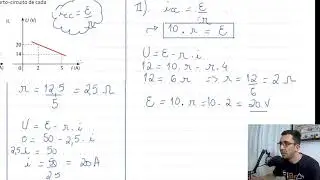 rto-circuito de cada
icc = E/r
U (V)
20
14
0
2
5
i (A)
r = 12,5/5 = 2,5 Ω
U = E - r.i
0 = 50 - 2,5.i
2,5i = 50
i = 50/2,5 = 20A
II). icc = E/r
10.r = E
U = E - r.i
12 = 10.r - r.4
12 = 6r ⇒ r = 12/6 = 2 Ω
E = 10.r = 10.2 = 20V